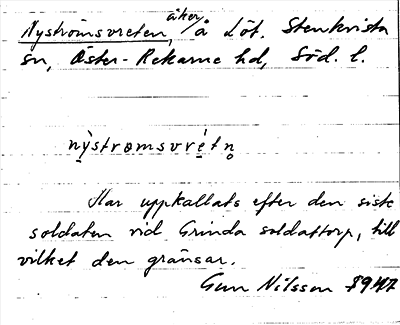 Nyströmsvreten, åker, å Löt. Stenkvista
sn, Öster-Rekarne hd, Söd. l.
nỳstromsvrétn̥
Har uppkallats efter den siste
soldaten vid Grinda soldattorp, till
vilket den gränsar.
Gun Nilsson 1947